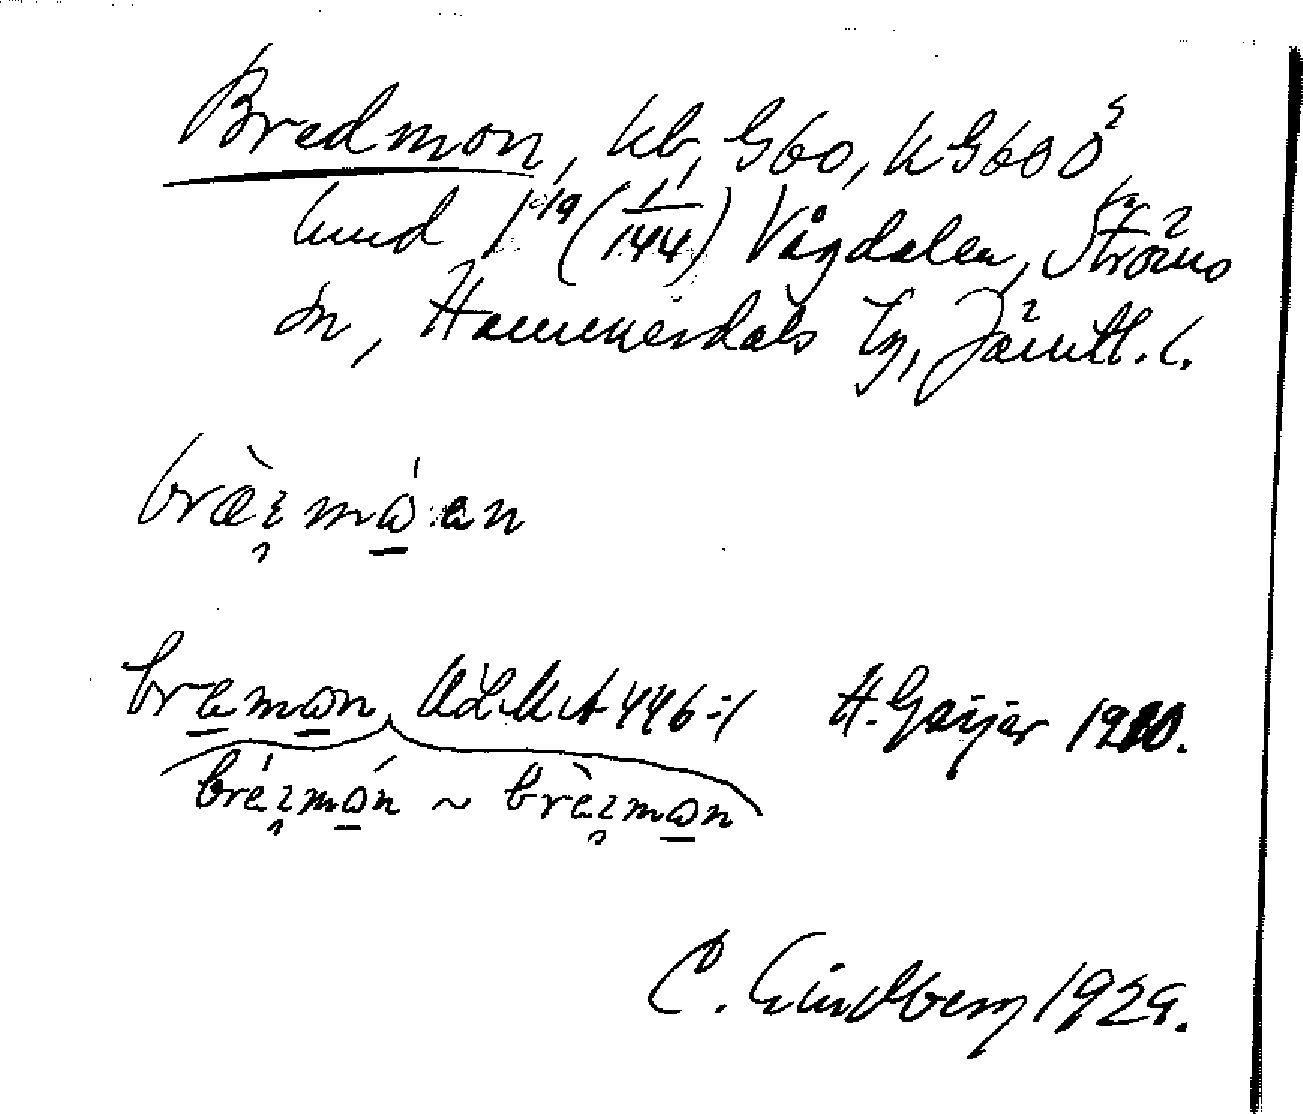 Bredmon, kb, G60, KG60Ö
und 1²⁻¹⁹ (1/144) Vågdalen, Ströms
sn, Hammerdals tg, Jämtl. l.
bræ̀ɪmɷ́en
bramɷn, ULMA 446:1 H. Geijer 1910.
bréɪmɷ́n ~ brèɪmɷn
C. Lindberg 1929.